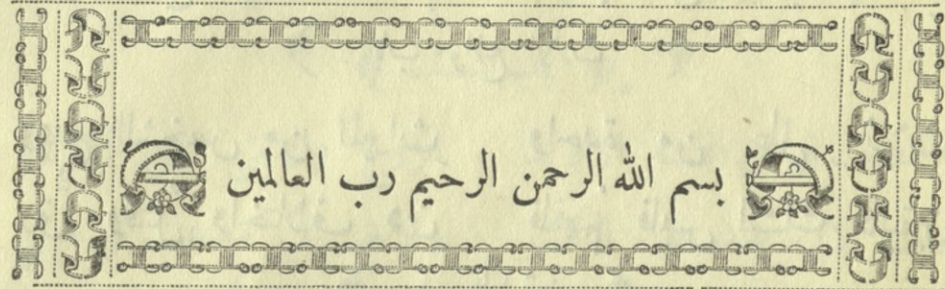 بسم الله الرحمن الرحيم رب العالمين